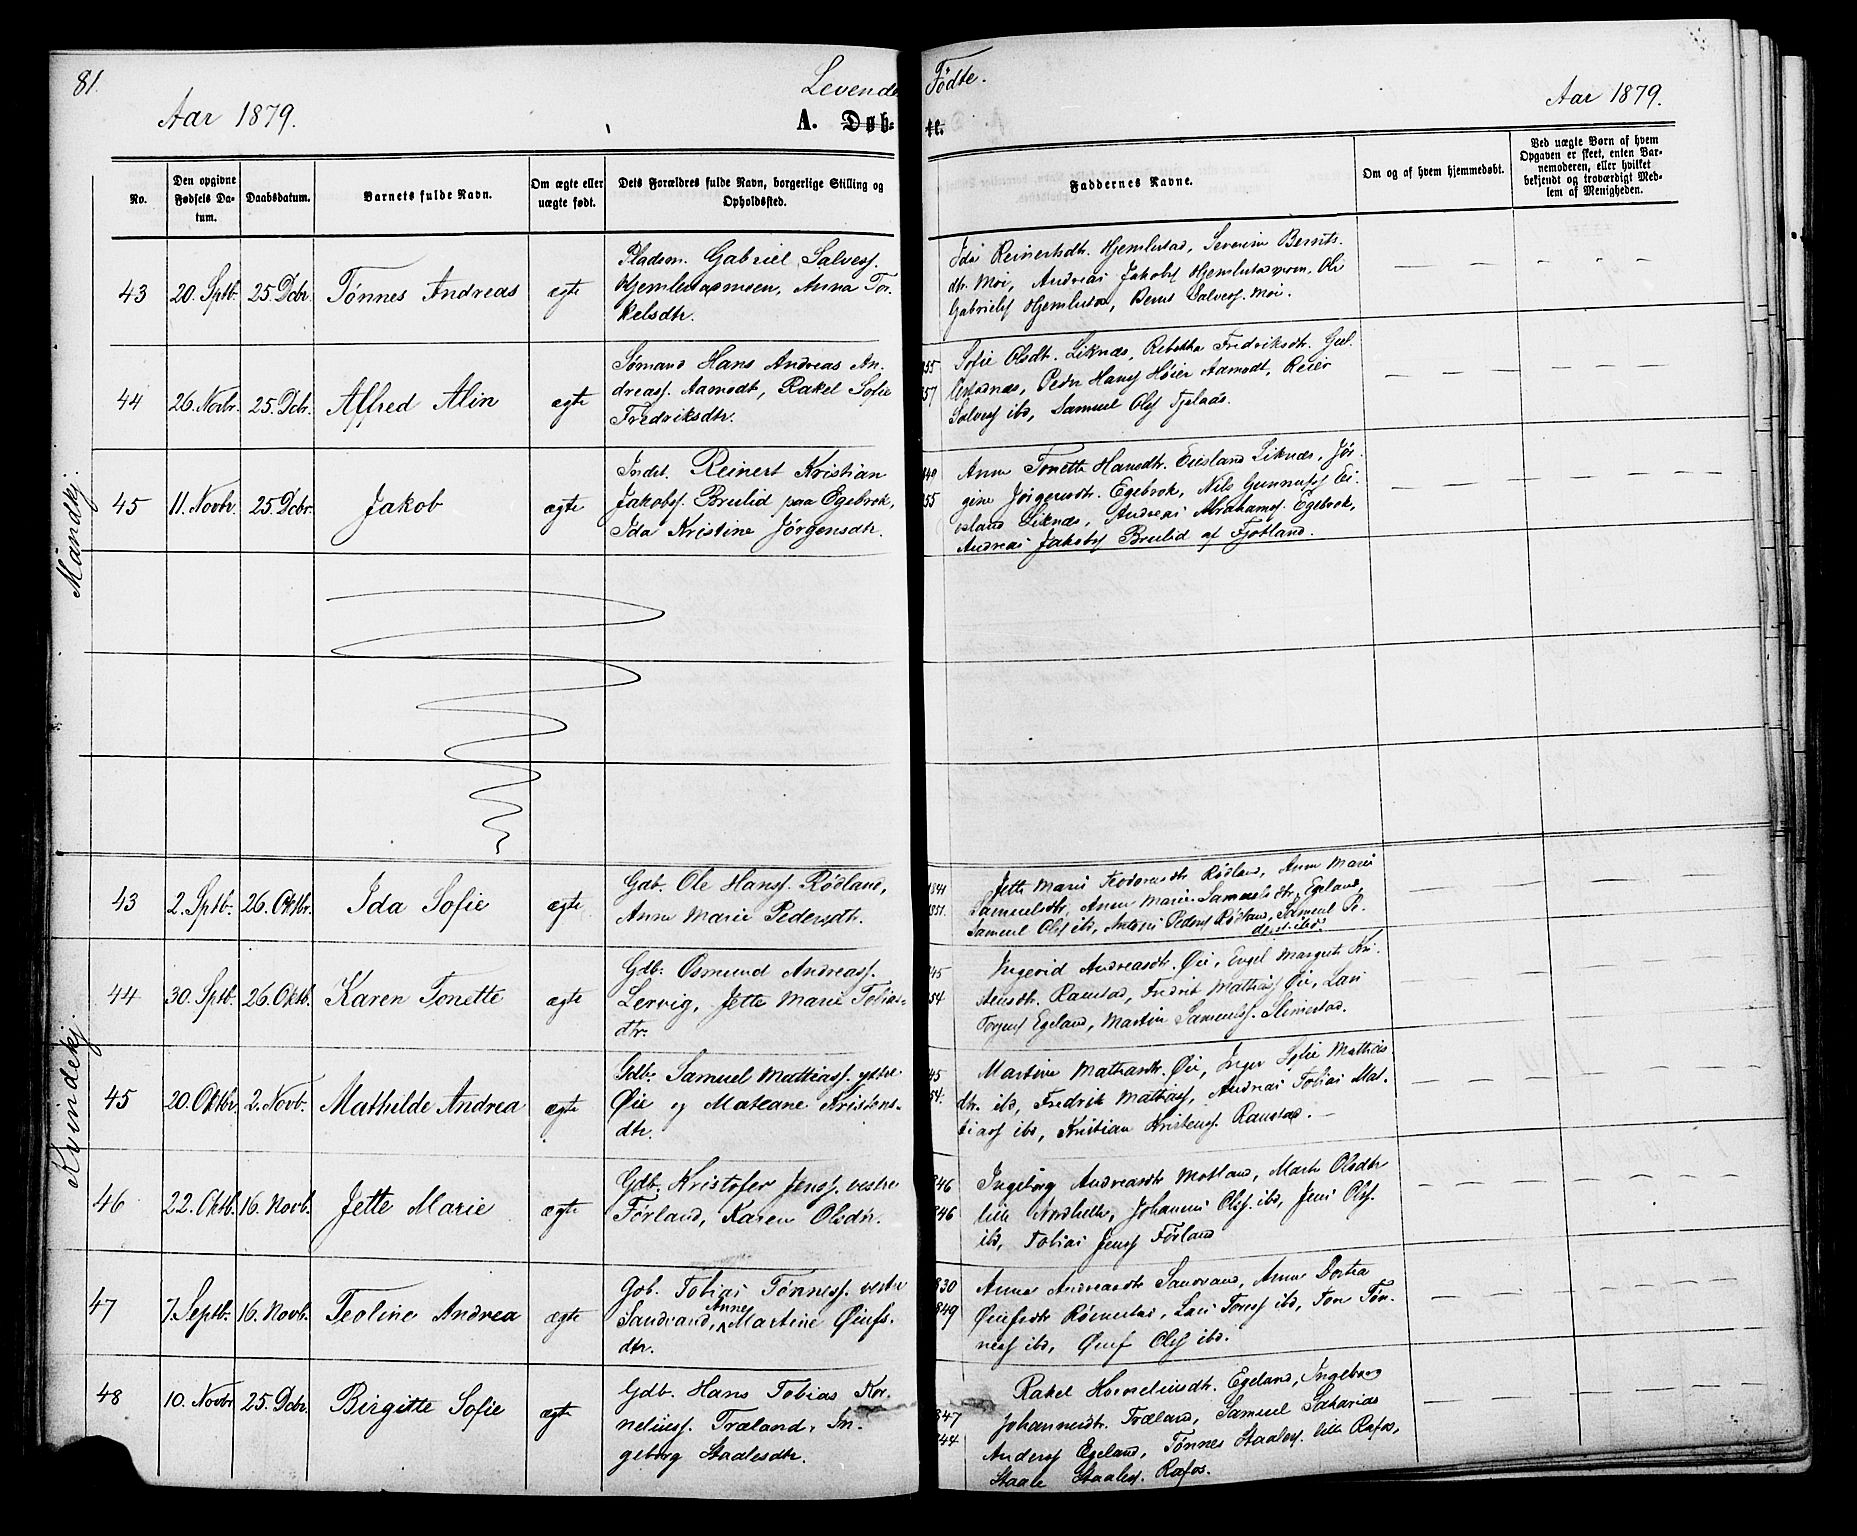 81.
Levende Fødte.
Aar 1879.
Aar 1879.
A. Døbte.
No.
Den opgivne Fødsels Da-
tum.
Daabsdatum.
Barnets fulde Navn.
Om ægte eller
uægte født.
Dets Forældres fulde Navn, borgerlige Stilling og
Opholdssted.
Faddernes Navne.
Om og af hvem hjemmedøbt.
Ved uægte Børn af hvem
Opgaven er skeet, enten Bar-
nemoderen, eller hvilket
bekjendt og troværdigt Med-
lem af Menigheden.
Mandkj.
43
20. Sptb.
25. Dcbr.
Tønnes Andreas
ægte
Pladsm. Gabriel Salvess.
Hjemlestadmoen, Anna Tor-
kelsdtr.
Ida Reinertsdtr. Hjemlestad, Severine Bernts-
dtr. Moi, Andreas Jakobs Hjemlestadmoen, Ole
Gabriels Hjemlestad, Bernt Salvess. Moi.
44
26. Novbr.
25. Dcbr.
Alfred Alin
ægte
Sømand Hans Andreas An-
dreass. Aamodt, Rakel Sofie
Fredriksdtr.
855
857
Sofie Olsdtr. Liknæs, Rebekka Fredriksdtr.
Peder Hans Aamodt, Reier
Salvess ibd, Samuel Ols
45
11. Novbr.
25. Dcbr.
Jakob
ægte
Inds. Reinert Kristian
Jakobs. Brulid paa Egebrok,
Ida Kristine Jörgensdtr.
849
855
Anne Tonette Hansdtr. Eiesland Liknæs, Jør-
gine Jörgensdtr. Egebrok, Nils Gunnufs Ei-
esland Liknæs, Andreas Abrahams. Egebrok,
Andreas Jakobs Brulid af Fjotland.
Kvindekj.
43
2. Sptb.
26. Oktbr.
Ida Sofie
ægte
Gdb. Ole Hanss. Rödland,
Anne Marie Pedersdtr.
1841
1851.
Jette Marie Teodorsdtr Rödland, Anne Marie
Samuelsdtr, Anne Marie Samuelsdtr. Egeland,
Samuel Ols ibd, Peders Rödland, Samuel Pe-
ders. ibd.
44
30. Sptb.
26. Oktb.
Karen Tonette
ægte
Gdb. Osmund Andreass.
Lervig, Jette Marie Tobias-
dtr.
845
854
Ingerid Andreasdtr. Øie, Engel Margrete Kri-
stensdtr. Ramstad, Fredrik Mathias Øie, Lars
Torjus Egeland, Martin Samuelss. Slimestad.
45
20. Oktbr
2. Novb.
Mathilde Andrea
ægte
Gdb. Samuel Mathiass. ystre
Øie og Mateane Kristens-
dtr.
845
854.
Martine Mathiasdtr. Øie, Inger Sofie Mathias-
dtr. ibd, Fredrik Mathiass, Andreas Tobias Mat-
tiass ibd, Kristian Kristens. Ramstad.
46
22. Oktb.
16. Novb.
Jette Marie
ægte
Gdb. Kristofer Jenss. vestre
Førland, Karen Olsdtr.
846
846
Ingeborg Andreasdtr Motland, Marte Olsdtr
lille Nordhelle, Johannes Ols. ibd, Jens Ols.
ibd, Tobias Jenss Førland
47
7. Septb.
16. Novb.
Teoline Andrea
ægte
Gdb. Tobias Tønness. vestre
Sandvand, Anne Martine Øiufs-
dtr.
830
849
Anne Andreasdtr Sandvand, Anne Dortea
Øiufsdtr Römestad, Lars Toress ibd, Ton Tøn-
ness ibd, Øiuf Ols ibd.
48
10. Novbr
25. Dcbr.
Birgitte Sofie
ægte
Gdb. Hans Tobias Kor-
neliuss. Træland, In-
geborg Staalesdtr.
847
844
Rakel Korneliusdtr. Egeland, Ingeborg
Johannesdtr. Træland, Samuel Sakarias
Anders Egeland, Tønnes Staaless. lille Rafos,
Staale Staaless. Rafos.